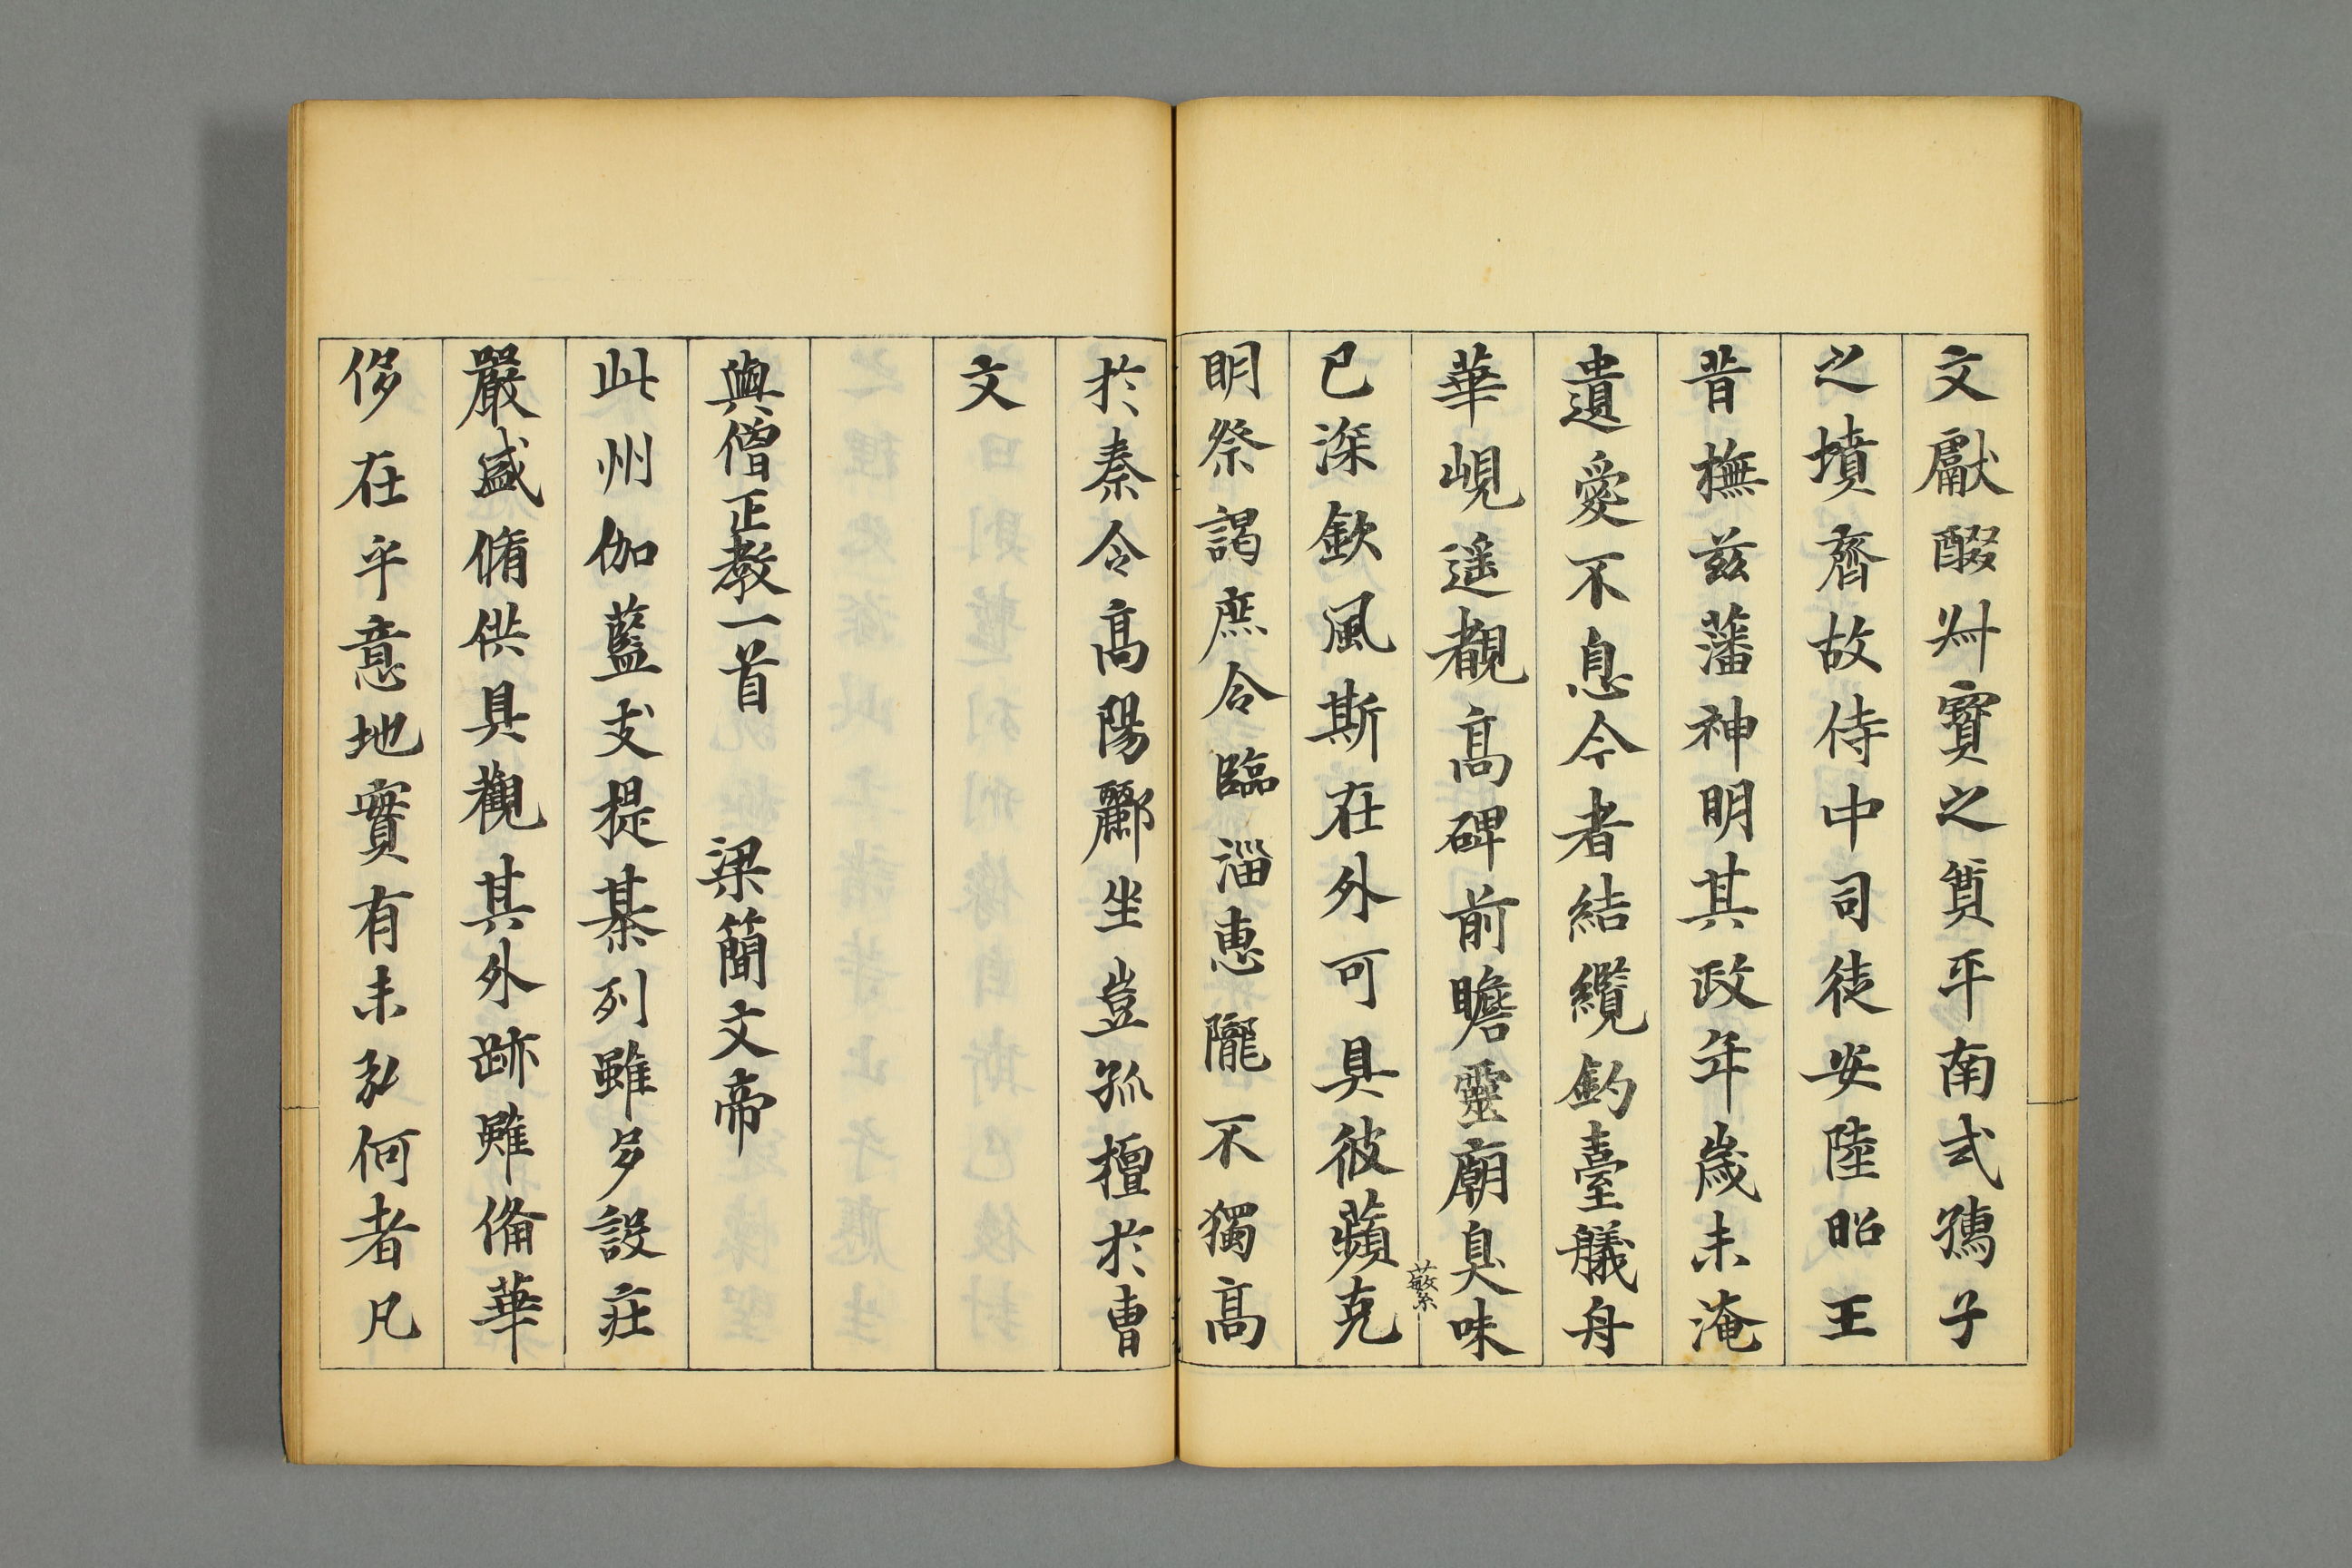 文獻醊州寳之質平南式鴻子
之墳齊故侍中司徒安陸昭王
昔撫兹藩神明其政年歲未淹
遺愛不息今者結纜釣臺艤舟
華峴遥覩髙碑前瞻靈廟臭味
已深欽風斯在外可具彼蘋克
蘩
明祭謁庶令臨淄惠隴不獨髙
於秦令髙陽酈坐豈孤檀於曹
文
與僧正教一首 梁簡文帝
此州伽藍支提基列雖多設莊
嚴盛脩供具觀其外跡雖備華
侈在乎意地實有未弘何者凡